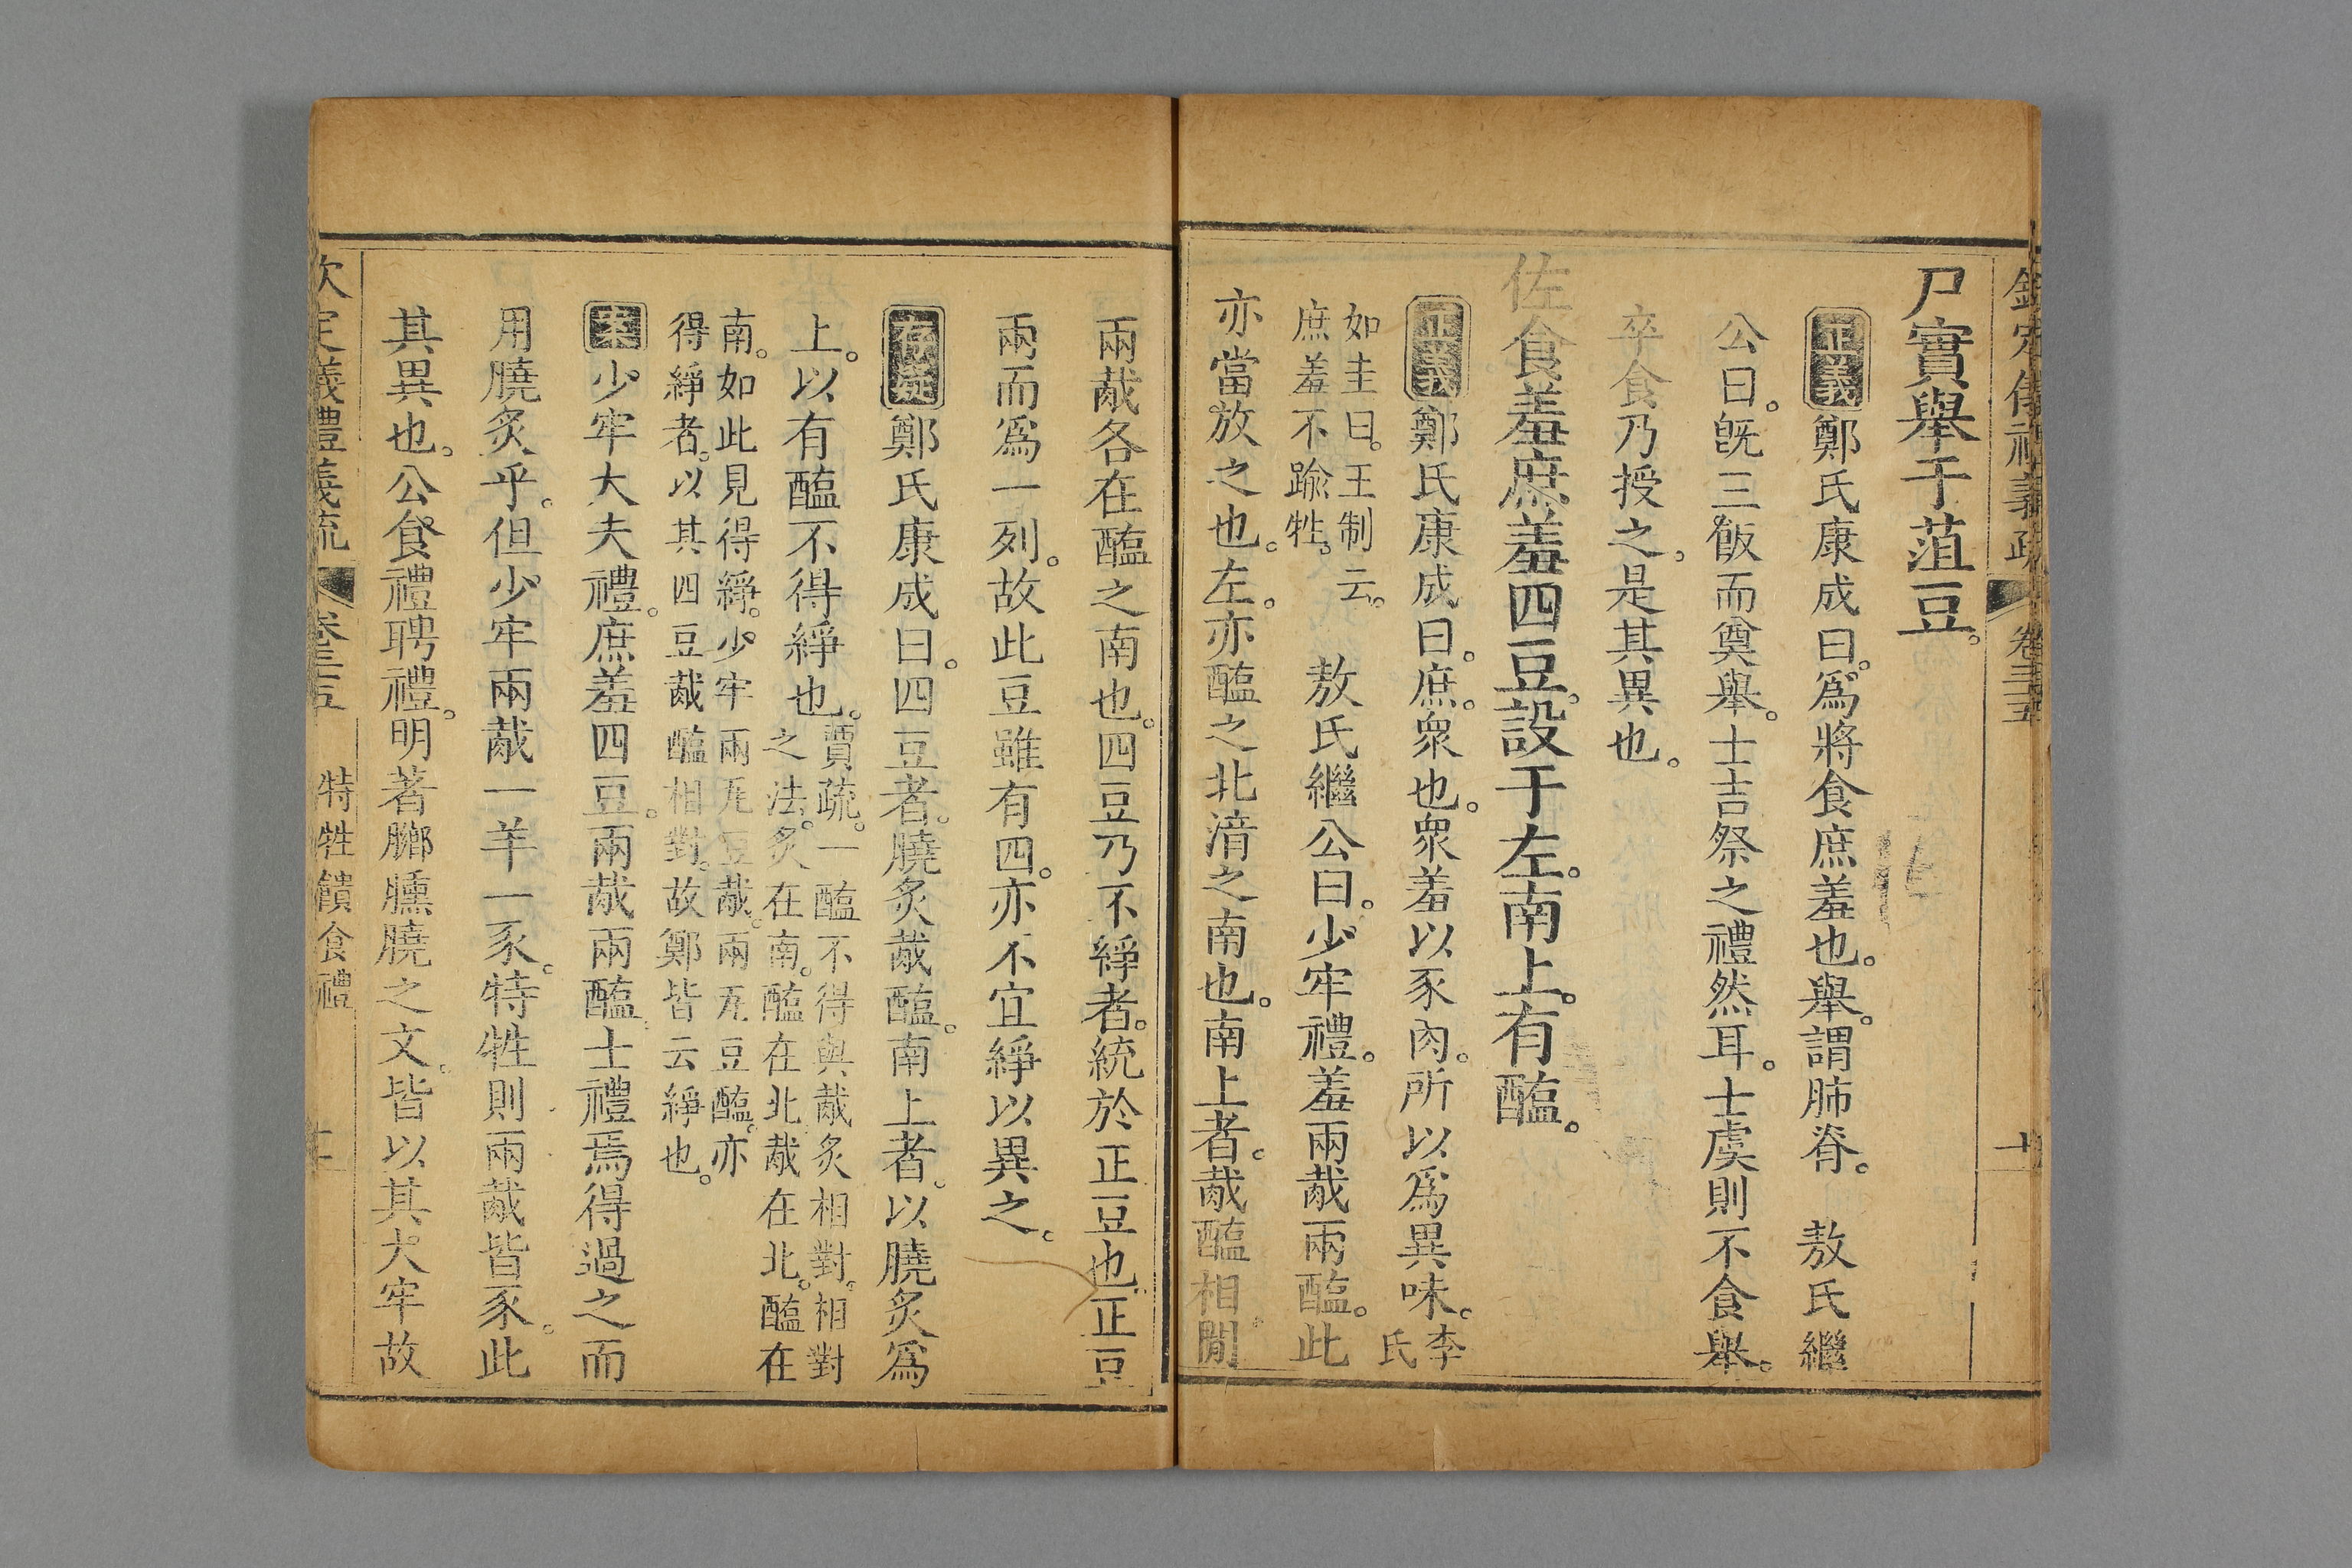 欽定儀禮義疏 卷三十五 十
尸實舉于菹豆。
正義 鄭氏康成曰。爲將食庶羞也。舉。謂肺脊。 敖氏繼
公曰。旣三飯而奠舉。士吉祭之禮然耳。士虞則不食舉。
卒食乃授之。是其異也。
佐食羞庶羞四豆。設于左。南上。有醢。
正義 鄭氏康成曰。庶。衆也。衆羞以豕肉。所以爲異味。李氏
如圭曰。王制云。庶羞不踰牲。 敖氏繼公曰。少牢禮。羞兩胾兩醢。此
亦當放之也。左。亦醢之北湇之南也。南上者。胾醢相閒。
兩胾各在醢之南也。四豆乃不綪者。統於正豆也。正豆
兩而爲一列。故此豆雖有四。亦不宜綪以異之。
存疑 鄭氏康成曰。四豆者。膮炙胾醢。南上者。以膮炙爲
上。以有醢不得綪也。賈疏。一醢不得與胾炙相對。相對之法。炙在南。醢在北。胾在北。醢在
南。如此見得綪。少牢兩瓦豆胾。兩瓦豆醢。亦得綪者。以其四豆胾醢相對。故鄭皆云綪也。
案 少牢大夫禮。庶羞四豆。兩胾兩醢。士禮焉得過之而
用膮炙乎。但少牢兩胾一羊一豕。特牲則兩胾皆豕。此
其異也。公食禮聘禮。明著膷臐膮之文。皆以其大牢故
欽定義禮義疏 卷三十五 特牲饋食禮 十一